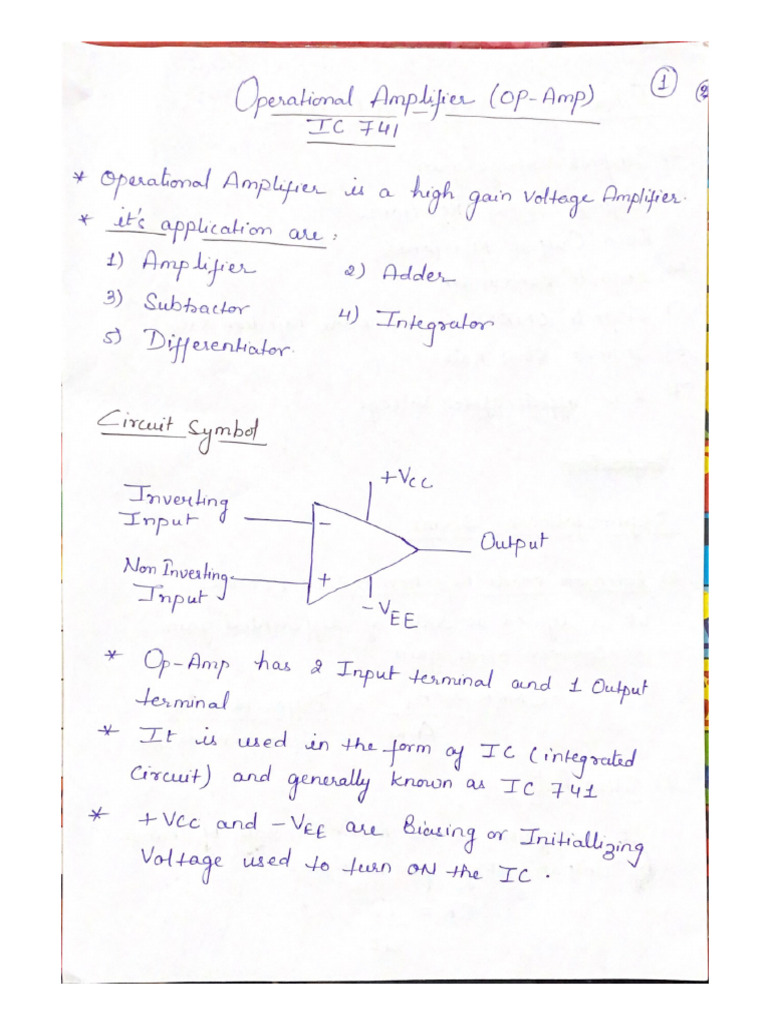 Operational Amplifier (OP-Amp) 1
IC 741
* Operational Amplifier is a high gain voltage Amplifier.
* it's application are :
1) Amplifier 2) Adder
3) Subtractor 4) Integrator
5) Differentiator.
Circuit Symbol
+VCC
Inverting
Input
-
Output
Non Inverting
Input
+
-VEE
* Op-Amp has 2 Input terminal and 1 Output
terminal
* It is used in the form of IC (integrated
Circuit) and generally known as IC 741
* +VCC and -VEE are Biasing or Initiallizing
Voltage used to turn ON the IC.